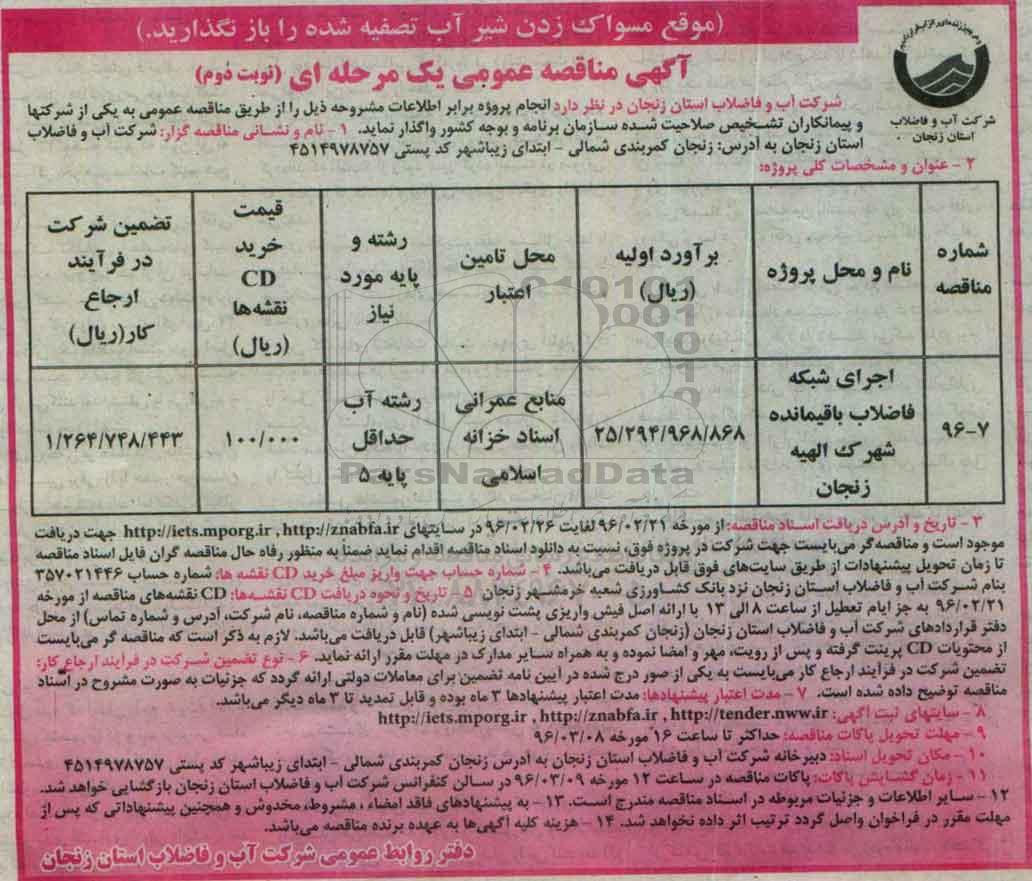 (موقع مسواک زدن شیر آب تصفیه شده را باز نگذارید.)
شرکت آب و فاضلاب
استان زنجان
آگهی مناقصه عمومی یک مرحله ای (نوبت دوم)
شرکت آب و فاضلاب استان زنجان در نظر دارد انجام پروژه برابر اطلاعات مشروحه ذیل را از طریق مناقصه عمومی به یکی از شرکتها
و پیمانکاران تشخیص صلاحیت شده سازمان برنامه و بوجه کشور واگذار نماید. ۱- نام و نشانی مناقصه گزار: شرکت آب و فاضلاب
استان زنجان به آدرس: زنجان کمربندی شمالی - ابتدای زیباشهر کد پستی ۴۵۱۴۹۷۸۷۵۷
۲- عنوان و مشخصات کلی پروژه:
شماره مناقصه | نام و محل پروژه | برآورد اولیه (ریال) | محل تامین اعتبار | رشته و پایه مورد نیاز | قیمت خرید CD نقشه‌ها (ریال) | تضمین شرکت در فرآیند ارجاع کار(ریال)
۹۶-۷ | اجرای شبکه فاضلاب باقیمانده شهرک الهیه زنجان | ۲۵/۲۹۴/۹۶۸/۸۶۸ | منابع عمرانی اسناد خزانه اسلامی | رشته آب حداقل پایه ۵ | ۱۰۰/۰۰۰ | ۱/۲۶۴/۷۴۸/۴۴۳
ParsNamadData
۳- تاریخ و آدرس دریافت اسناد مناقصه: از مورخه ۹۶/۰۲/۲۱ لغایت ۹۶/۰۲/۲۶ در سایتهای http://iets.mporg.ir , http://znabfa.ir جهت دریافت
موجود است و مناقصه‌گر می‌بایست جهت شرکت در پروژه فوق، نسبت به دانلود اسناد مناقصه اقدام نماید ضمناً به منظور رفاه حال مناقصه گران فایل اسناد مناقصه
تا زمان تحویل پیشنهادات از طریق سایت‌های فوق قابل دریافت می‌باشد. ۴- شماره حساب جهت واریز مبلغ خرید CD نقشه ها: شماره حساب ۳۵۷۰۲۱۴۴۶
بنام شرکت آب و فاضلاب استان زنجان نزد بانک کشاورزی شعبه خرمشهر زنجان ۵- تاریخ و نحوه دریافت CD نقشه‌ها: CD نقشه‌های مناقصه از مورخه
۹۶/۰۲/۲۱ به جز ایام تعطیل از ساعت ۸ الی ۱۳ با ارائه اصل فیش واریزی پشت نویسی شده (نام و شماره مناقصه، نام شرکت، آدرس و شماره تماس) از محل
دفتر قراردادهای شرکت آب و فاضلاب استان زنجان (زنجان کمربندی شمالی - ابتدای زیباشهر) قابل دریافت می‌باشد. لازم به ذکر است که مناقصه گر می‌بایست
از محتویات CD پرینت گرفته و پس از رویت، مهر و امضا نموده و به همراه سایر مدارک در مهلت مقرر ارائه نماید. ۶- نوع تضمین شرکت در فرآیند ارجاع کار:
تضمین شرکت در فرآیند ارجاع کار می‌بایست به یکی از صور درج شده در آیین نامه تضمین برای معاملات دولتی ارائه گردد که جزئیات به صورت مشروح در اسناد
مناقصه توضیح داده شده است. ۷- مدت اعتبار پیشنهادها: مدت اعتبار پیشنهادها ۳ ماه بوده و قابل تمدید تا ۳ ماه دیگر می‌باشد.
۸- سایتهای ثبت آگهی: http://iets.mporg.ir , http://znabfa.ir , http://tender.nww.ir
۹- مهلت تحویل پاکات مناقصه: حداکثر تا ساعت ۱۶ مورخه ۹۶/۰۳/۰۸
۱۰- مکان تحویل اسناد: دبیرخانه شرکت آب و فاضلاب استان زنجان به آدرس زنجان کمربندی شمالی - ابتدای زیباشهر کد پستی ۴۵۱۴۹۷۸۷۵۷
۱۱- زمان گشایش پاکات: پاکات مناقصه در ساعت ۱۲ مورخه ۹۶/۰۳/۰۹ در سالن کنفرانس شرکت آب و فاضلاب استان زنجان بازگشایی خواهد شد.
۱۲- سایر اطلاعات و جزئیات مربوطه در اسناد مناقصه مندرج است. ۱۳- به پیشنهادهای فاقد امضاء ، مشروط، مخدوش و همچنین پیشنهاداتی که پس از
مهلت مقرر در فراخوان واصل گردد ترتیب اثر داده نخواهد شد. ۱۴- هزینه کلیه آگهی‌ها به عهده برنده مناقصه می‌باشد.
دفتر روابط عمومی شرکت آب و فاضلاب استان زنجان